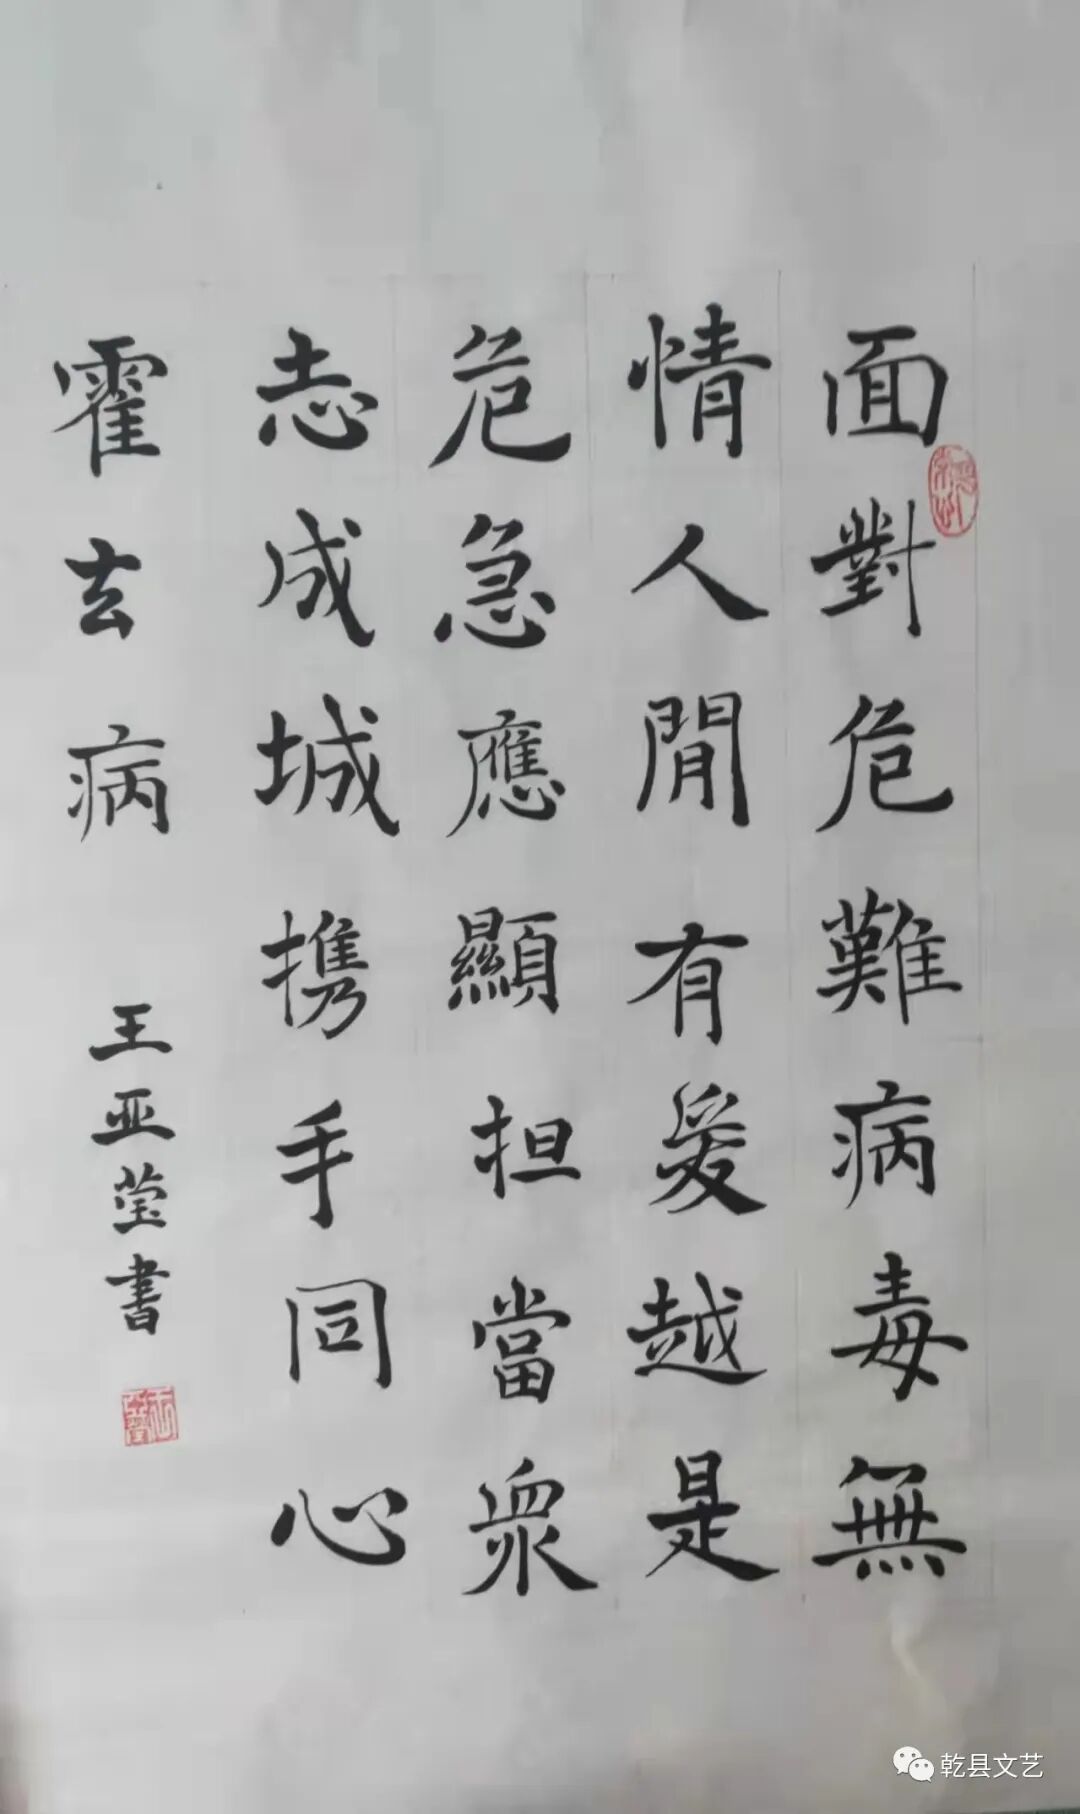 面對危難病毒無
情人間有爱越是
危急應顯担當衆
志成城携手同心
霍去病
王亚莹書
乾县文艺